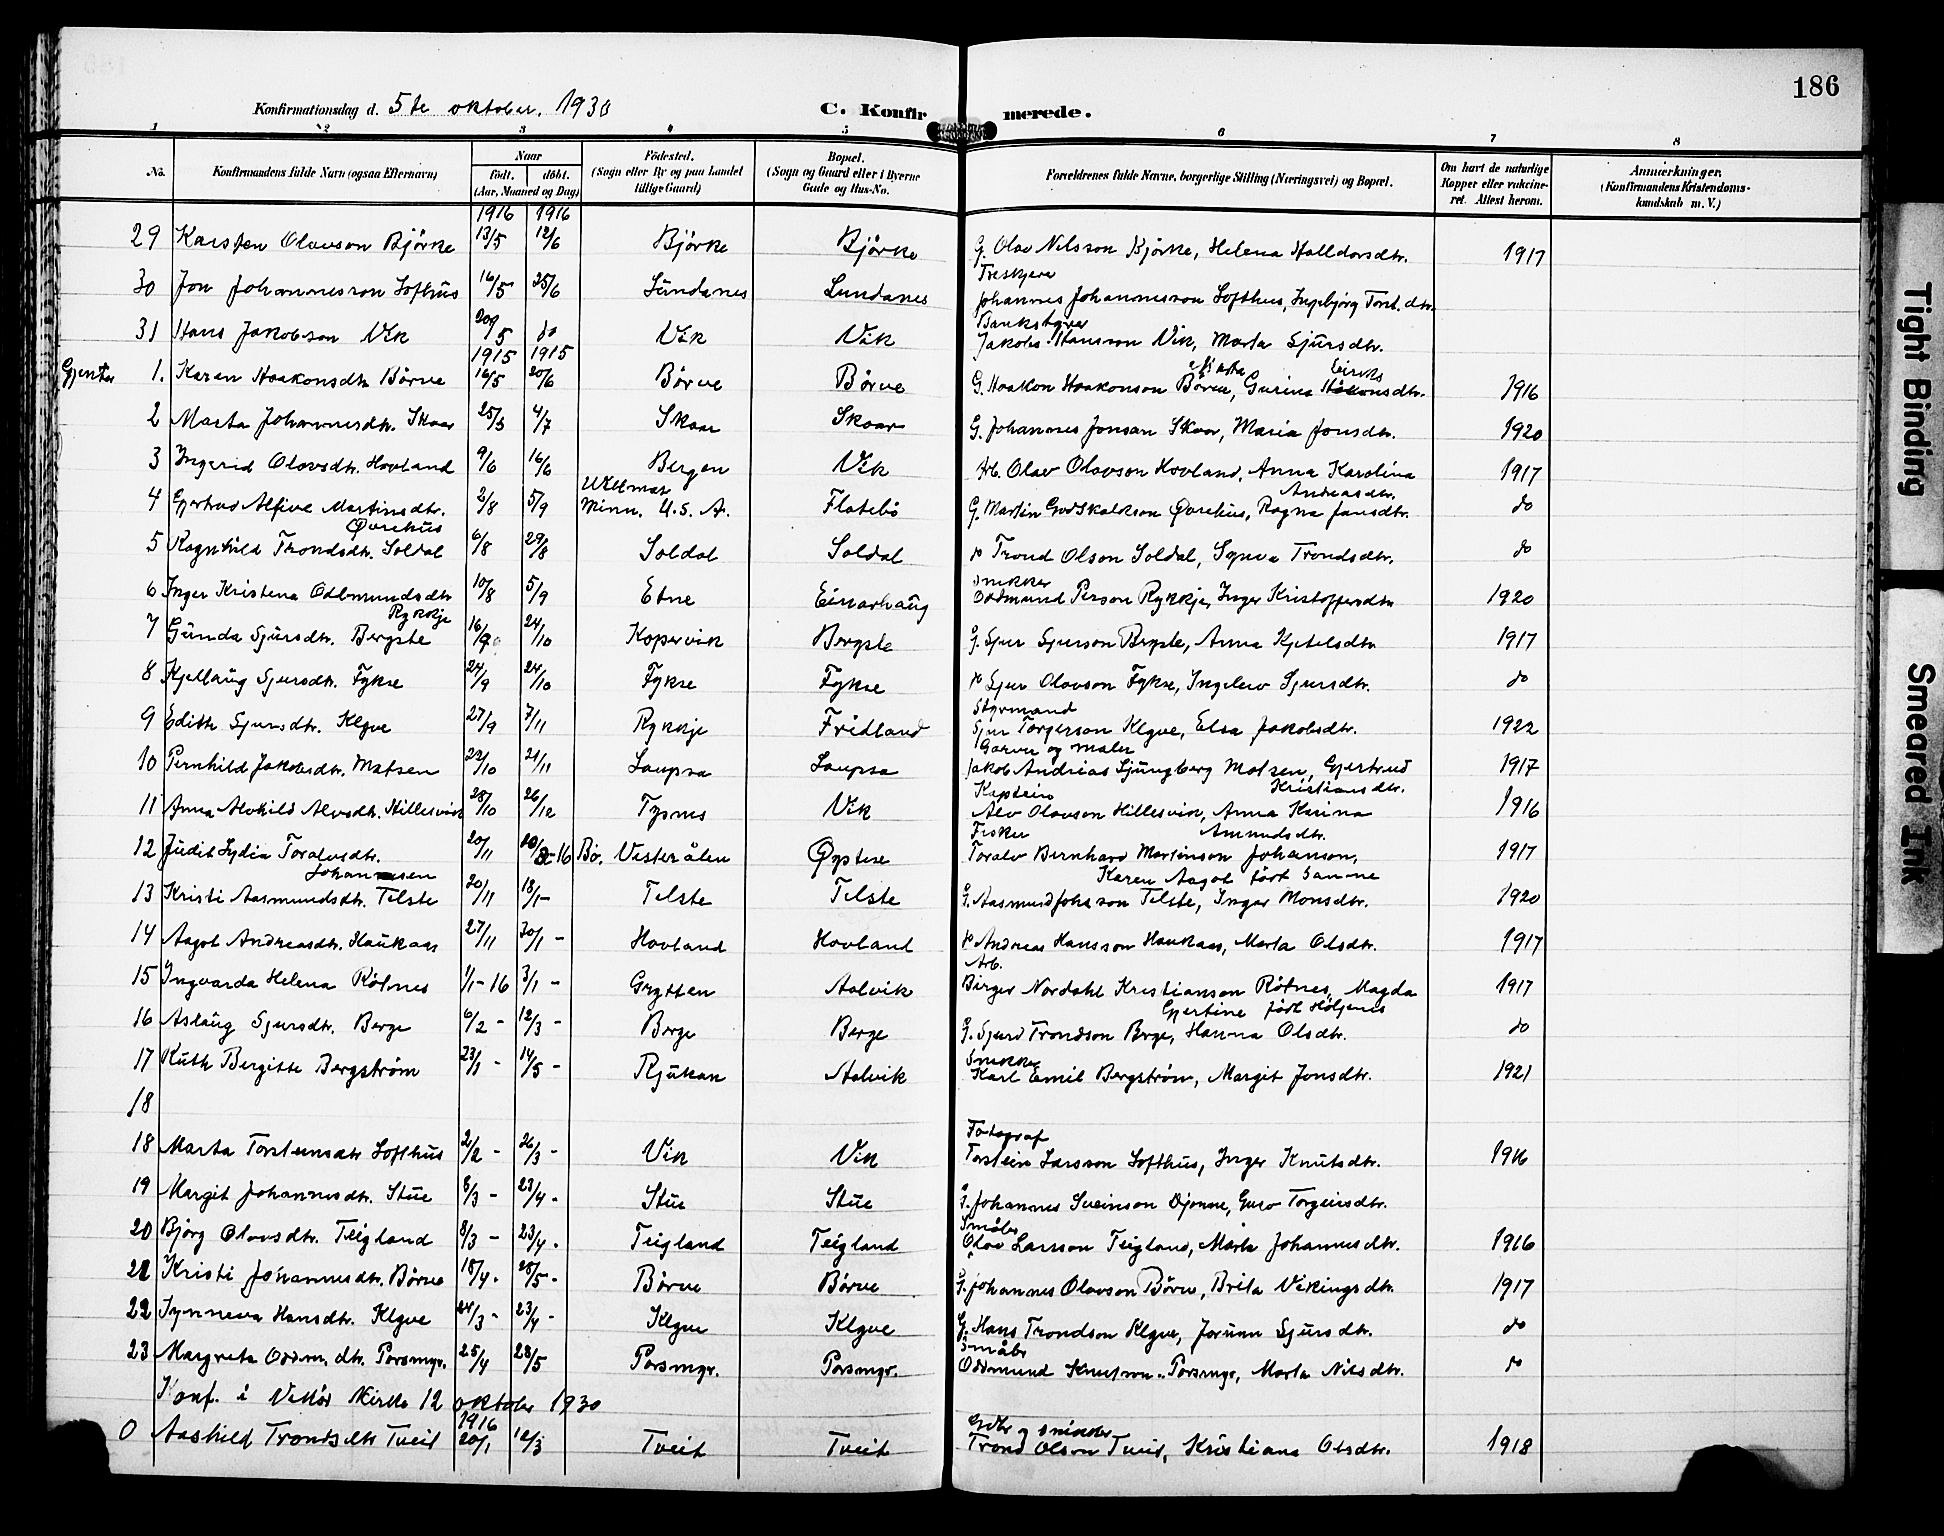 186
Konfirmationsdag d. 5te oktober. 1930 C. Konfirmerede.
1 2 3 4 5 6 7 8
No. Konfirmandens fulde Navn (ogsaa Efternavn) Naar født. døbt. (Aar, Maaned og Dag) Fødested. (Sogn eller By og paa Landet tillige Gaard) Bopæl. (Sogn og Gaard eller i Byerne Gade og Hus-No. Forældrenes fulde Navne, borgerlige Stilling (Næringsvei) og Bopæl. Om havt de naturlige Kopper eller vakcineret. Attest herom. Anmærkninger. (Konfirmandens Kristendomskundskab m. V.)
1916 1916
29 Karsten Olavson Bjørke 13/5 12/6 Bjørke Bjørke G. Olav Nilsson Bjørke, Helena Halldorsdtr. 1917
Treskjerer
30 Jon Johannesson Lofthus 16/5 25/6 Sundanes Lundanes Johannes Johannesson Lofthus, Ingebjørg Torst.dtr.
Bankstyrer
31 Hans Jakobson Vik 20/5 do Vik Vik Jakob Hansson Vik, Marta Sjursdtr.
1915 1915
Gjenter 1. Karen Haakonsdtr Børve 16/5 20/6 Børve Børve G. Haakon Haakonson Børve, Gurina Eiriksdtr. 1916
2 Marta Johannesdtr. Skaar 25/5 4/7 Skaar Skaar G. Johannes Jonsan Skaar, Maria Jonsdtr. 1920
3 Ingerid Olavsdtr. Hovland 9/6 16/6 Bergen Vik Arb. Olav Olavson Hovland, Anna Karolina Andreasdtr. 1917
4 Gjertrud Alfive Martinsdtr. Øvrehus 2/8 5/9 Willmar Minn. U.S.A. Flatebø G. Martin Godskalkson Øvrehus, Ragna Jansdtr. do
5 Ragnhild Trondsdtr. Soldal 6/8 29/8 Soldal Soldal Trond Olson Soldal, Synva Trondsdtr. do
Snekker
6 Inger Kristena Oddmundsdtr Rykkje 10/8 5/9 Etne Einarhaug Oddmund Person Rykkje, Inger Kristoffersdtr 1920
7 Gunda Sjursdtr. Bergste 16/9 24/10 Kopervik Bergste G. Sjur Sjurson Bergste, Anna Kjetelsdtr 1917
8 Kjellaug Sjursdtr. Fykse 24/9 24/10 Fykse Fykse Sjur Olavson Fykse, Ingelev Sjursdtr. do
Styrmand
9 Edith Sjursdtr. Klyve 27/9 7/11 Rykkje Fridland Sjur Torgerson Klyve, Elsa Jakobsdtr. 1922
Garver og maler
10 Pernhild Jakobsdtr. Matsen 22/10 21/11 Laupsa Laupsa Jakob Andreas Ljungberg Matsen, Gjertrud Kristiansdtr. 1917
Kaptein
11 Anna Alvhild Alvsdtr. Hillesvik 28/10 26/12 Tysnes Vik Alv Olavson Hillesvik, Anna Karina Amundsdtr. 1916
Fisker
12 Judit Lydia Toralvsdtr. Johansen 20/11 -16 Bø, Vesterålen Øystese Toralv Bernhard Martinson Johanson, Karen Aagot født Sanne 1917
13 Kristi Aasmundsdtr. Telste 20/11 18/1 - Telste Telste G. Aasmund Johanson Telste, Inger Monsdtr. 1920
14 Aagot Andreasdtr. Haukaas 27/11 30/1 - Hovland Hovland Andreas Hansson Haukaas, Marta Olsdtr. 1917
Arb.
15 Ingvarda Helena Røtnes 1/1-16 3/1 - Grytten Aalvik Birger Nordahl Kristianson Røtnes, Magda Gjertine født Holjenes 1917
16 Aslaug Sjursdtr. Berge 6/2 - 12/3 - Berge Berge G. Sjurd Trondson Berge, Hanna Olsdtr. do
Snekker
17 Ruth Bergitte Bergstrøm 23/1 - 14/5 - Rjukan Aalvik Karl Emil Bergstrøm, Margit Jonsdtr. 1921
18
Fotograf
18 Marta Torsteinsdtr Lofthus 2/2 - 26/3 - Vik Vik Torstein Larsson Lofthus, Inger Knutsdtr. 1916
19 Margit Johannesdtr. Stue 8/3 - 23/4 - Stue Stue G. Johannes Sveinson Djonne, Guro Torgeirsdtr.
Småbr
20 Bjørg Olavsdtr. Teigland 8/3 - 23/4 - Teigland Teigland Olav Larsson Teigland, Marta Johannesdtr. 1916
21 Kristi Johannesdtr. Børve 18/4 - 28/5 - Børve Børve G. Johannes Olavson Børve, Brita Vikingsdtr. 1917
22 Synneva Hansdtr. Klyve 24/3 - 23/4 - Klyve Klyve G. Hans Trondson Klyve, Jorunn Sjursdtr. do
Småbr
23 Margreta Oddm.dtr. Porsmyr. 25/4 28/5 Porsmyr. Porsmyr. Oddmund Knutson Porsmyr, Marta Nilsdtr. do
Konf. i Vikør kirke 12 oktober 1930
1916
Gbr og snikker
0 Aashild Trondsdtr Tveit 20/1 12/3 Tveit Tveit Trond Olson Tveit, Kristiana Olsdtr. 1918
Tight Binding
Smeared Ink